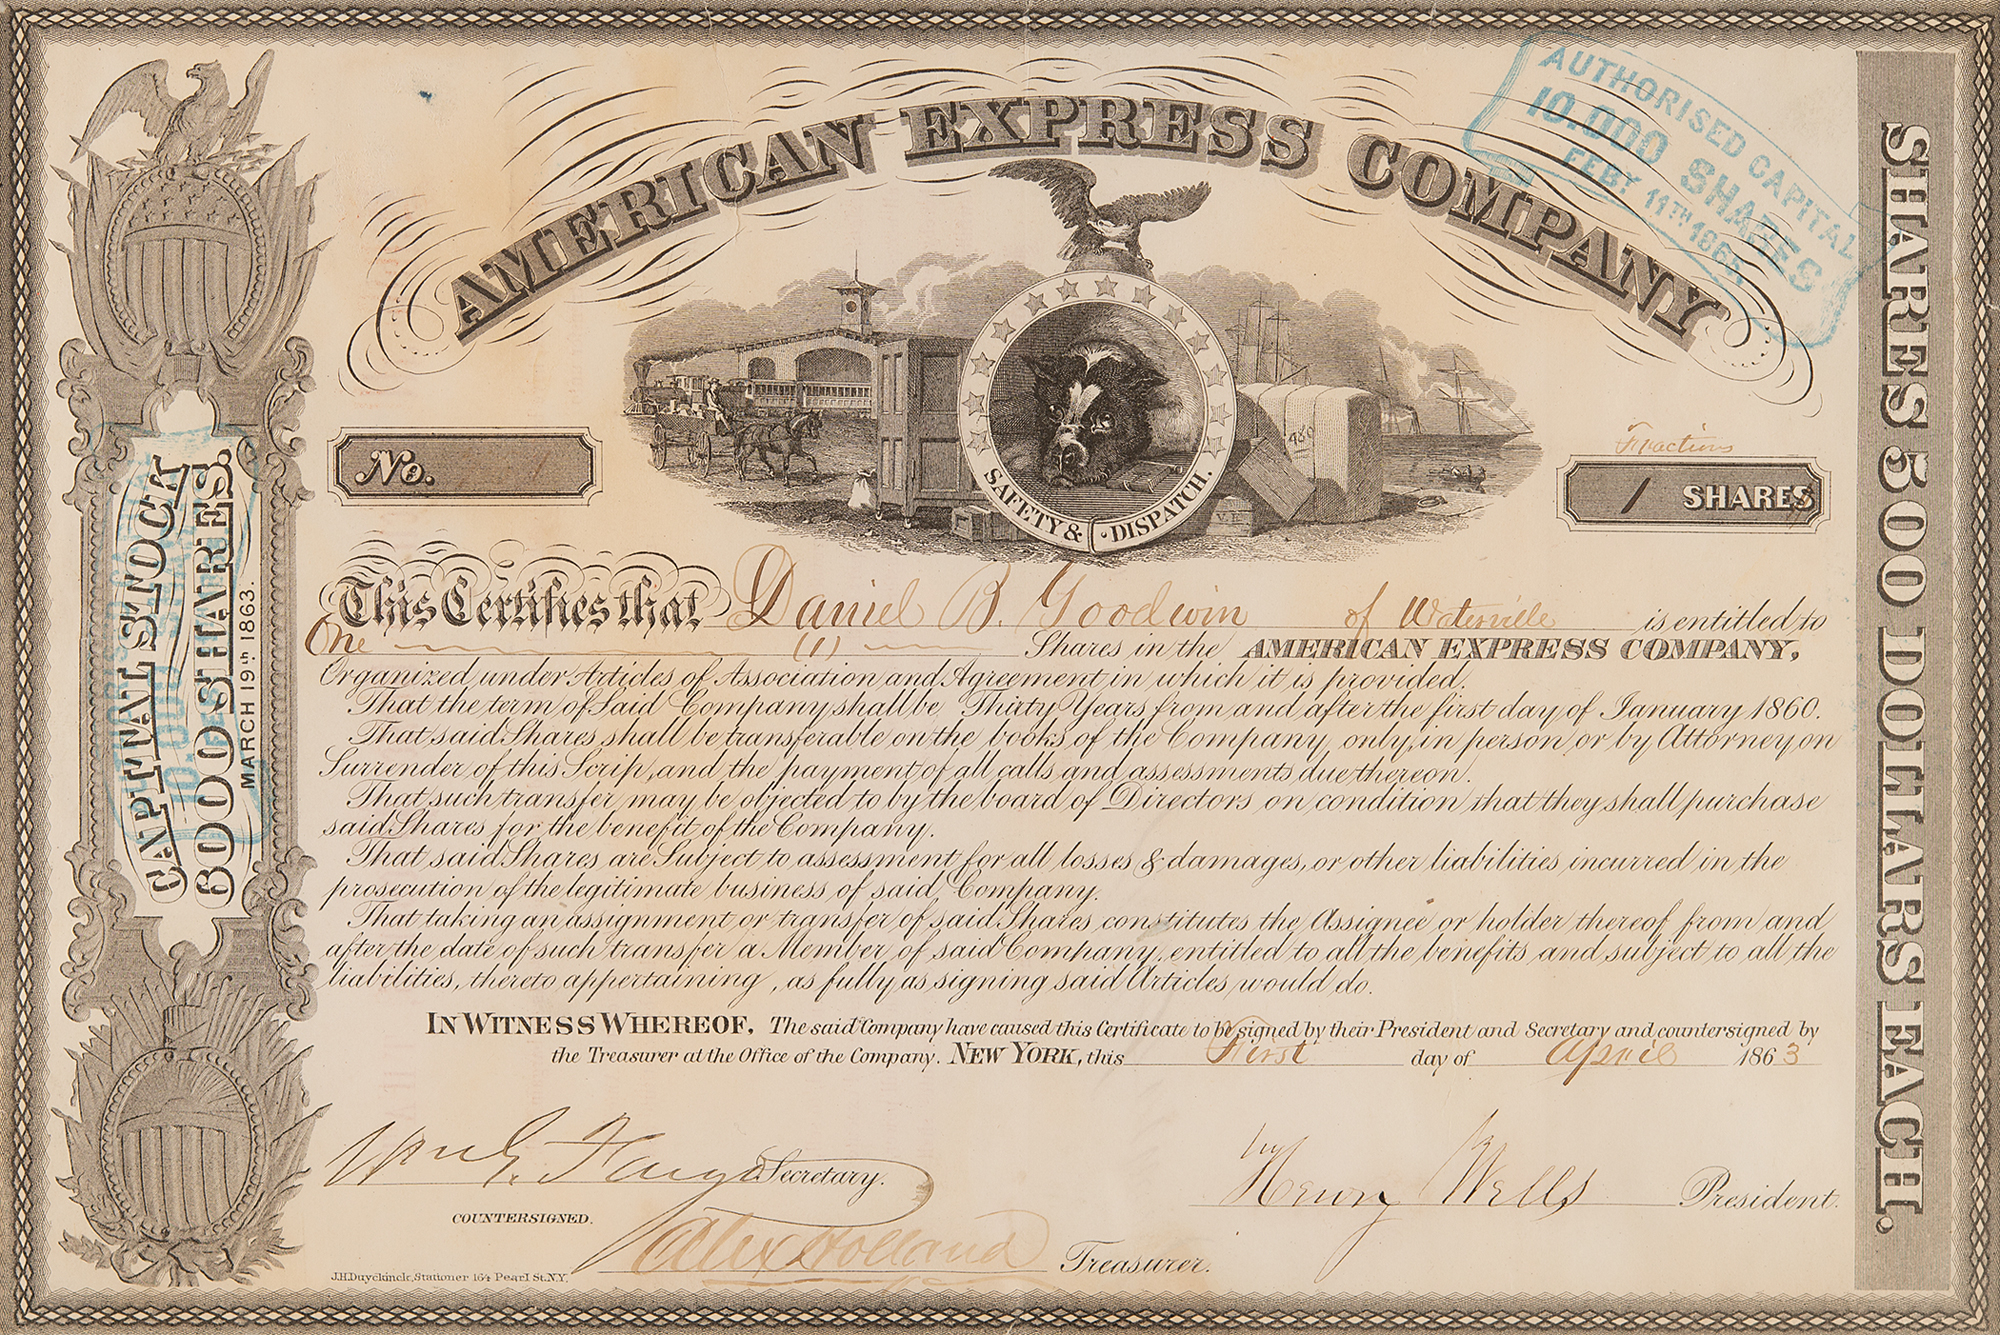 AMERICAN EXPRESS COMPANY
AUTHORISED CAPITAL
10.000 SHARES
FEBY 11TH 186
No. 1
SAFETY & DISPATCH.
480
V.E
Fractions
1 SHARES
This Certifies that Daniel B. Goodwin of Waterville is entitled to
One (1) Shares in the AMERICAN EXPRESS COMPANY,
Organized under Articles of Association and Agreement in which it is provided.
That the term of Said Company shall be Thirty Years from and after the first day of January 1860.
That said Shares shall be transferable on the books of the Company only, in person or by Attorney on
Surrender of this Scrip, and the payment of all calls and assessments due thereon.
That such transfer may be objected to by the board of Directors on condition that they shall purchase
said Shares for the benefit of the Company.
That said Shares are Subject to assessment for all losses & damages, or other liabilities incurred in the
prosecution of the legitimate business of said Company.
That taking an assignment or transfer of said Shares constitutes the Assignee or holder thereof from and
after the date of such transfer a Member of said Company, entitled to all the benefits and subject to all the
liabilities, thereto appertaining, as fully as signing said Articles would do.
IN WITNESS WHEREOF, The said Company have caused this Certificate to be signed by their President and Secretary and countersigned by
the Treasurer at the Office of the Company. NEW YORK, this First day of April 1863
Wm G. Fargo Secretary.
Henry Wells President.
COUNTERSIGNED.
Alex Holland Treasurer.
J.H.Duyckinck, Stationer 164 Pearl St. N.Y.
CAPITAL STOCK
6000 SHARES.
MARCH 19th 1863.
SHARES 500 DOLLARS EACH.